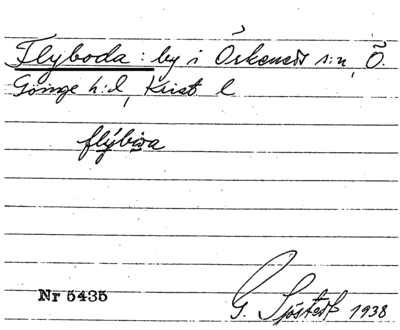 Flyboda: by i Örkeneds s:n, Ö.
Gönge h:d, Krist. l
flýbꝏa
Nr 5435
G. Sjöstedt 1938